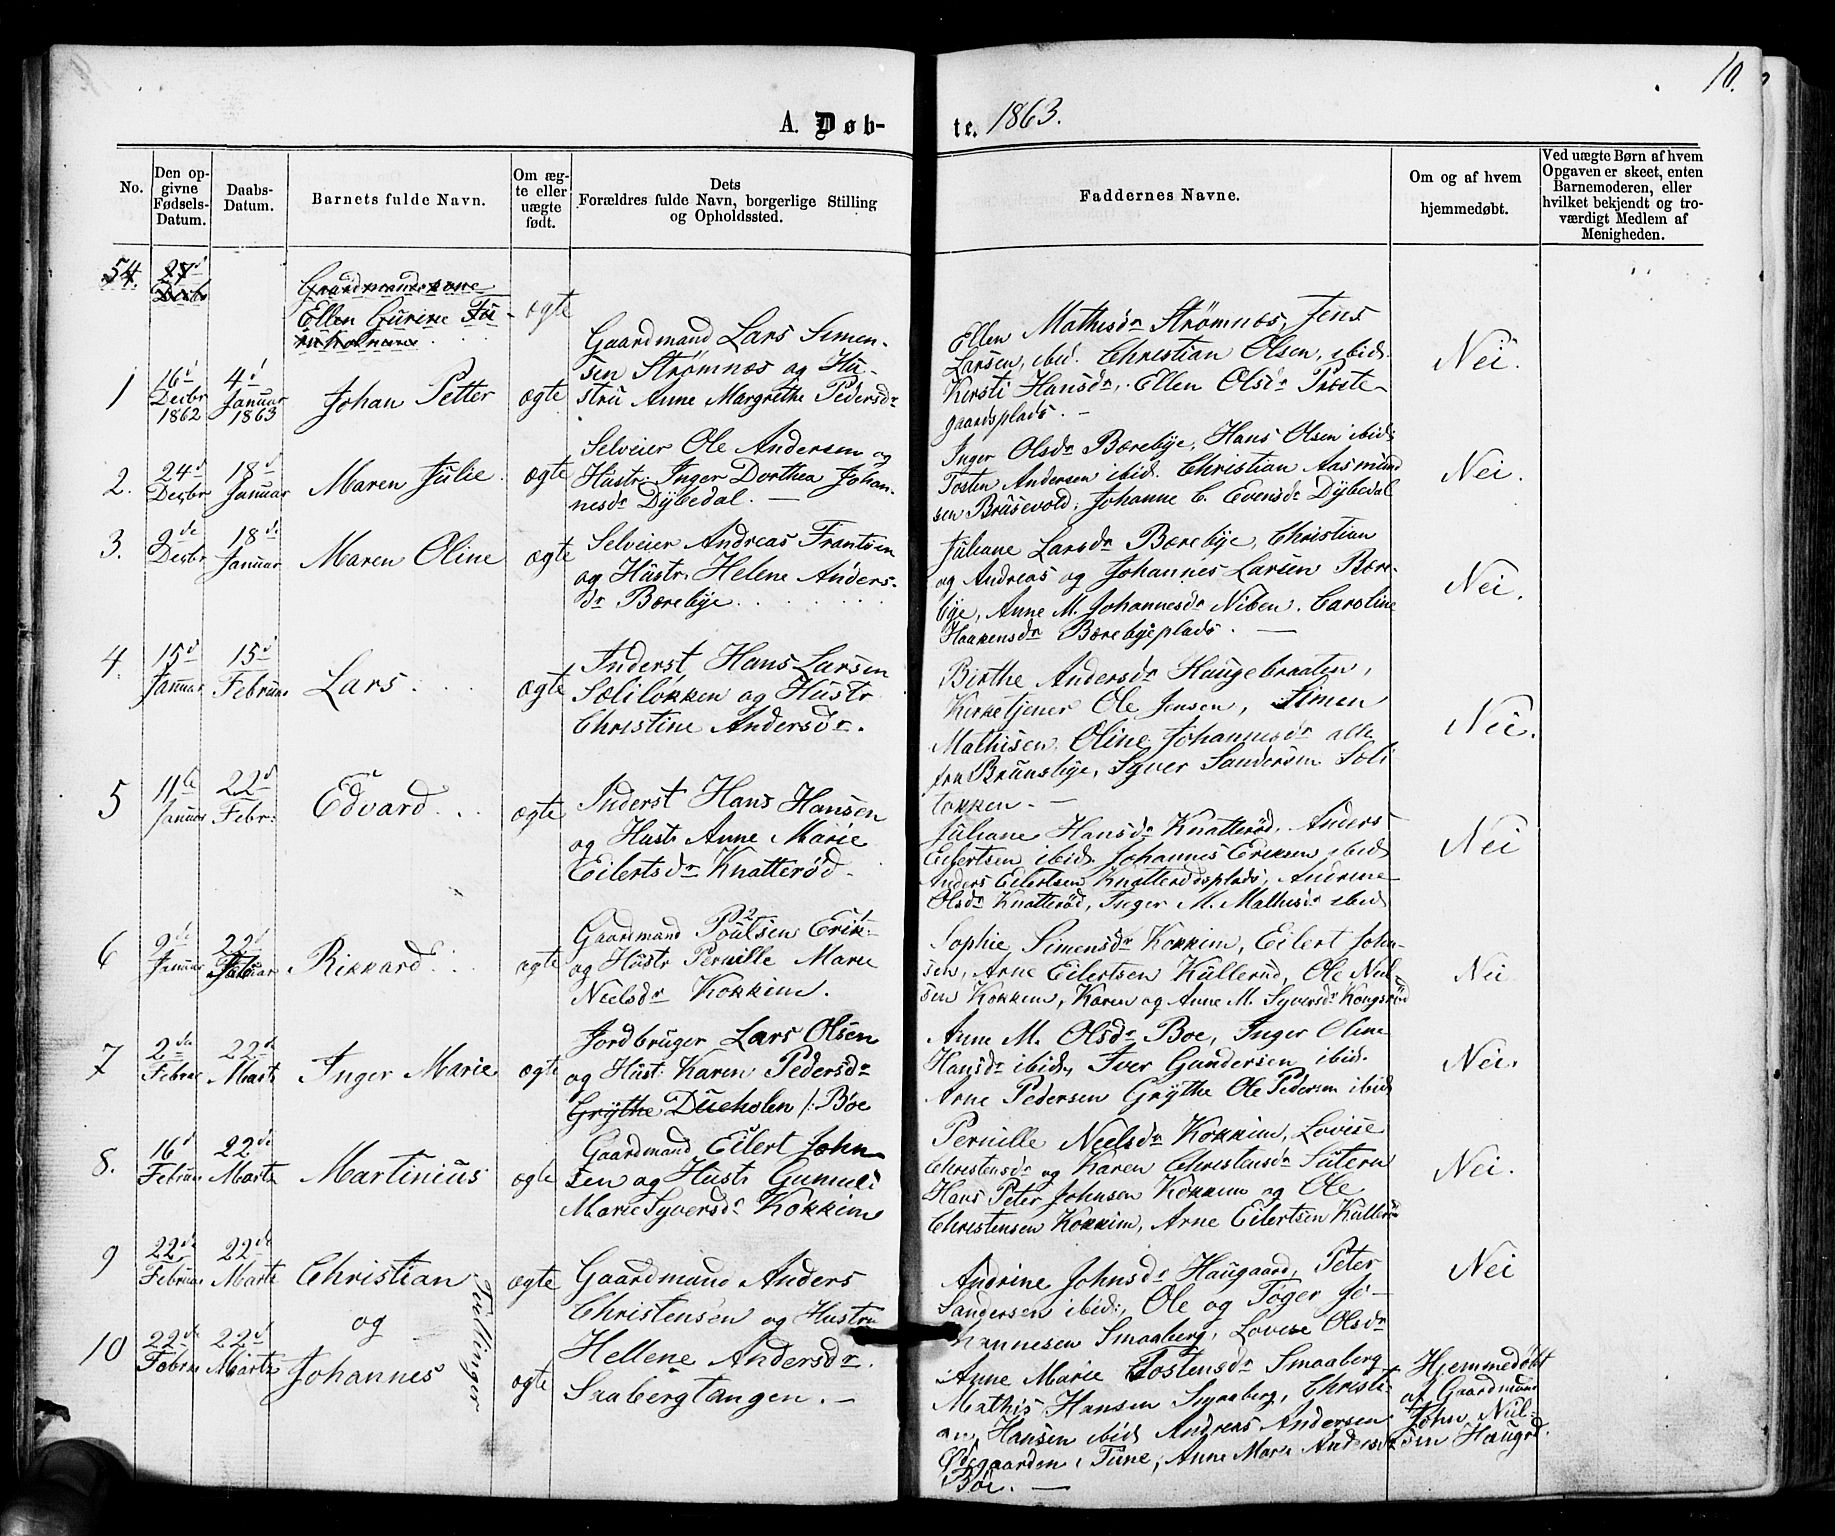 10.
A. Døb-
te. 1863.
No.
Den op-
givne
Fødsels-
Datum.
Daabs-
Datum.
Barnets fulde Navn.
Om æg-
te eller
uægte
født.
Dets
Forældres fulde Navn, borgerlige Stilling
og Opholdssted.
Faddernes Navne.
Om og af hvem
hjemmedøbt.
Ved uægte Børn af hvem
Opgaven er skeet, enten
Barnemoderen, eller
hvilket bekjendt og tro-
værdigt Medlem af
Menigheden.
54.
27d
Decbr
Ellen Gurine
ægte
1
16d
Decbr
1862
4d
Januar
1863
Johan Petter
ægte
Gaardmand Lars Simen-
sen Strømnæs og Hu-
stru Anne Margrethe Pedersdr
Ellen Mathisdr Strømnæs, Jens
Larsen, ibid. Christian Olsen, ibid.
Kersti Hansdr. Ellen Olsdr Præste-
gaardsplads. –
Nei.
2.
24d
Decbr
18d
Januar
Maren Julie
ægte
Selveier Ole Andersen og
Hustr. Inger Dorthea Johan-
nesdr Dybedal. –
Inger Olsdr Bærebye, Hans Olsen ibid.
Tosten Andersen ibid. Christian Aasmund
sen Brusevold, Johanne C. Evensdr Dybedal
Nei.
3.
2de
Decbr
18de
Januar
Maren Oline
ægte
Selveier Andreas Frantsen
og Hustr. Helene Anders-
dr Bærebye.
Juliane Larsdr Bærebye, Christian
og Andreas og Johannes Larsen Bære-
bye, Anne M. Johannesdr Niben. Caroline
Haakensdr Bærebyeplads. –
Nei.
4.
15d
Januar
15d
Februar
Lars.
ægte
Inderst Hans Larsen
Soliløkken og Hustr
Christine Andersdr.
Birthe Andersdr Haugebraaten,
Kirketjener Ole Jensen, Simen
Mathisen, Oline Johannesdr alle
fra Brunsbye, Syver Sandersen Soli
løkken. –
Nei.
5
11te
Januar
22d
Febr.
Edvard
ægte
Inderst Hans Hansen
og Hustr Anne Marie
Eilertsdr Knatterød.
Juliane Hansdr Knatterød, Anders
Eilertsen ibid. Johannes Eriksen ibid
Anders Eilertsen Knatterødsplads, Andrine
Olsdr Knatterød, Inger M. Mathisdr ibid
Nei
6
2de
Januar
22d
Rikkard
ægte
Gaardmand Poulsen Erik
og Hustr Pernille Marie
Neelsdr Kokkim.
Sophie Simensdr Kokkim, Eilert John-
sen, Arne Eilertsen Kullerud, Ole Neel-
sen Kokkim, Karen og Anne M. Syversdr Kongsrød
Nei
7
2de
Februar
22de
Marts
Inger Marie
ægte
Jordbruger Lars Olsen
og Hust. Karen Pedersdr
Grythe Dueholen /: Boe
Anne M. Olsdr Boe, Inger Oline
Hansdr ibid, Iver Gundersen ibid.
Arne Pedersen Grythe Ole Pedersen ibid
Nei.
8.
16d
Februar
22de
Marts
Martinius
ægte
Gaardmand Eilert John-
sen og Hustr Gunnild
Marie Syversdr Kokkim
Pernille Neelsdr Kokkim, Lovise
Christensdr og Karen Christensdr Sutern
Hans Peter Johnsen Kokkim og Ole
Christensen Kokkim, Arne Eilertsen Kullerød
Nei.
9
22de
Februar
22de
Marts
Christian
ægte
Gaardmand Anders
Christensen og Hustru
Andrine Johnsdr Haugaard, Peter
Sandersen ibid., Ole og Toger Jo-
hannesen Smaaberg, Lovise Olsdr
Nei
og
Tvillinger
10
22de
Februar
22d
Marts
Johannes
ægte
Hellene Andersdr.
Saabergtangen. –
Anne Marie Tostensdr Smaaberg
Mathis Hansen Smaaberg, Christi-
an Hansen ibid Andreas Andersen
Ødegaarden, Tune, Anne Marie Andersdr
Boe. –
Hjemmedøbt
af Gaardmand
John Niel-
sen Haugrd.